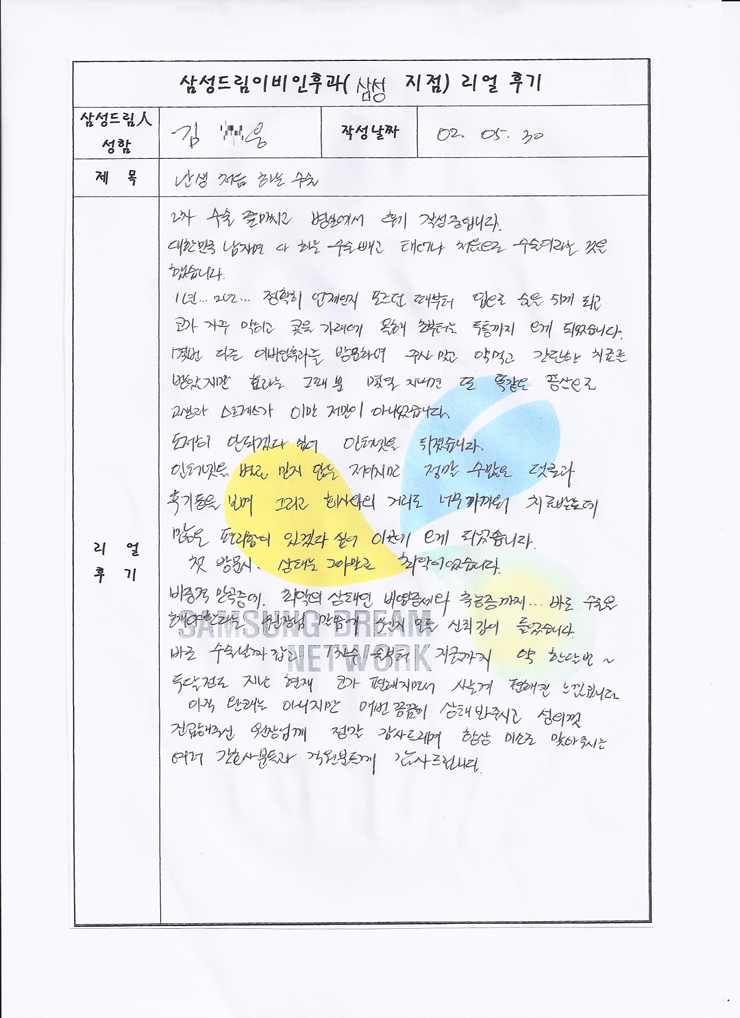 삼성드림이비인후과( 삼성 지점) 리얼 후기
삼성드림人 성함
김 응
작성날짜
02. 05. 30
제 목
난생 처음 하는 수술
리 얼 후 기
2차 수술 끝마치고 병원에서 후기 작성중입니다.
대한민국 남자면 다 하는 수술빼고 태어나 처음으로 수술이라는 것을
했습니다.
1년... 2년... 정확히 언제인지 모르던 때부터 입으로 숨을 쉬게 되고
코가 자주 막히고 콧물 가래에 목해 두통까지 오게 되었습니다.
몇번 다른 이비인후과를 방문하여 주사 맞고 약먹고 간단한 치료를
받았지만 효과는 그때 뿐 몇일 지나면 또 똑같은 증상으로
고생과 스트레스가 이만 저만이 아니었습니다.
도저히 안되겠다 싶어 인터넷을 뒤졌습니다.
인터넷을 별로 믿지 않는 저이지만 정말 수많은 댓글과
후기들을 보며 그리고 회사와의 거리도 너무 가까워 치료받는데
많은 편리함이 있겠다 싶어 이곳에 오게 되었습니다.
첫 방문시. 상태는 그야말로 최악이었습니다.
비중격 만곡증에. 최악의 상태인 비염증세와 축농증까지... 바로 수술을
해야한다는 원장님 말씀에 왠지 모를 신뢰감이 들었습니다.
바로 수술날짜 잡고 1차수술부터 지금까지 약 한달반 ~
두달정도 지난 현재 코가 편해지면서 사는게 편해진 느낌입니다.
아직 완쾌는 아니지만 매번 꼼꼼이 상태 봐주시고 성의껏
진료해주신 원장님께 정말 감사드리며 항상 미소로 맞아주시는
여러 간호사분들과 직원분들께 감사드립니다.
SAMSUNG DREAM
NETWORK